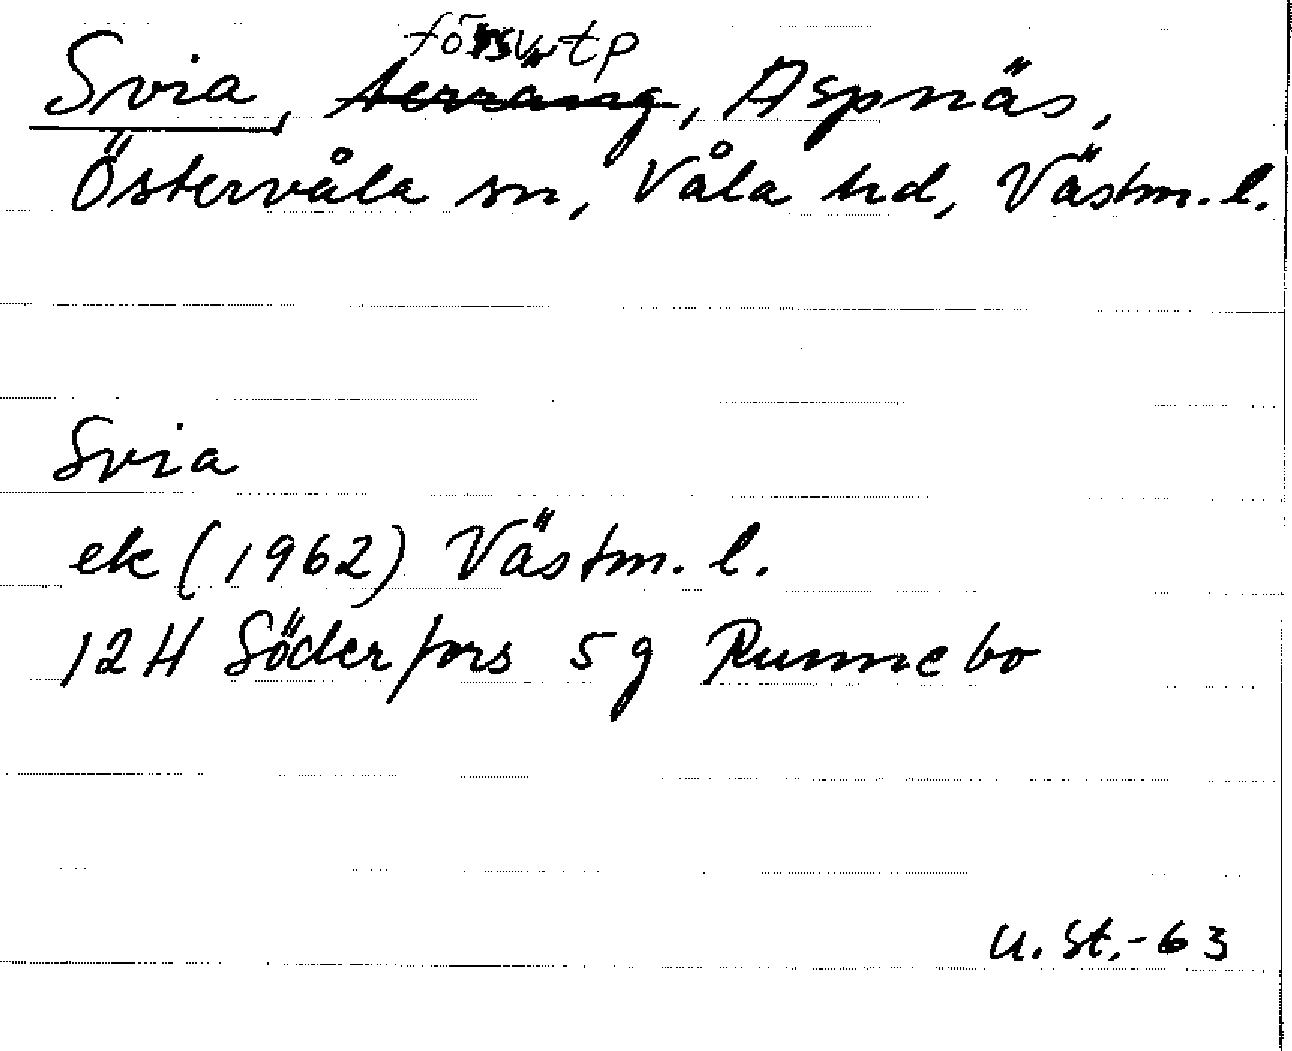 försv. tp
Svia, terräng, Aspnäs,
Östervåla sn, Våla hd, Västm. l.
Svia
ek (1962) Västm. l.
12H Söderfors 5g Runnebo
U. St.-63